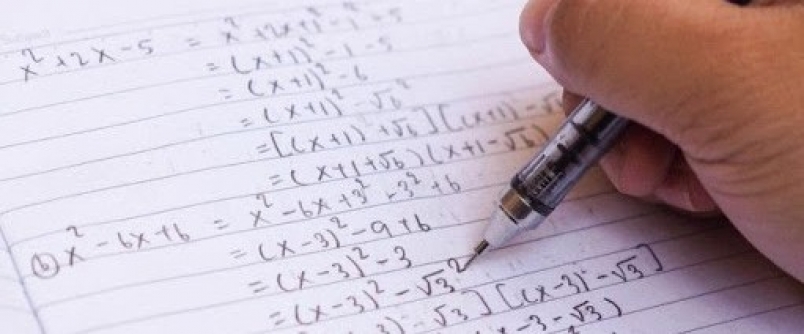 x² + 2x - 5 = x² + 2x + 1² - 1 - 5
= (x+1)² - 1 - 5
= (x+1)² - 6
= (x+1)² - √6²
= [(x+1) + √6] [(x+1) - √
= (x+1+√6) (x+1-√6)
(b) x² - 6x + 6 = x² - 6x + 3² - 3² + 6
= (x-3)² - 9 + 6
= (x-3)² - 3
= (x-3)² - √3²
3) - √3] [(x-3) - √3]
x - 3 - √3)